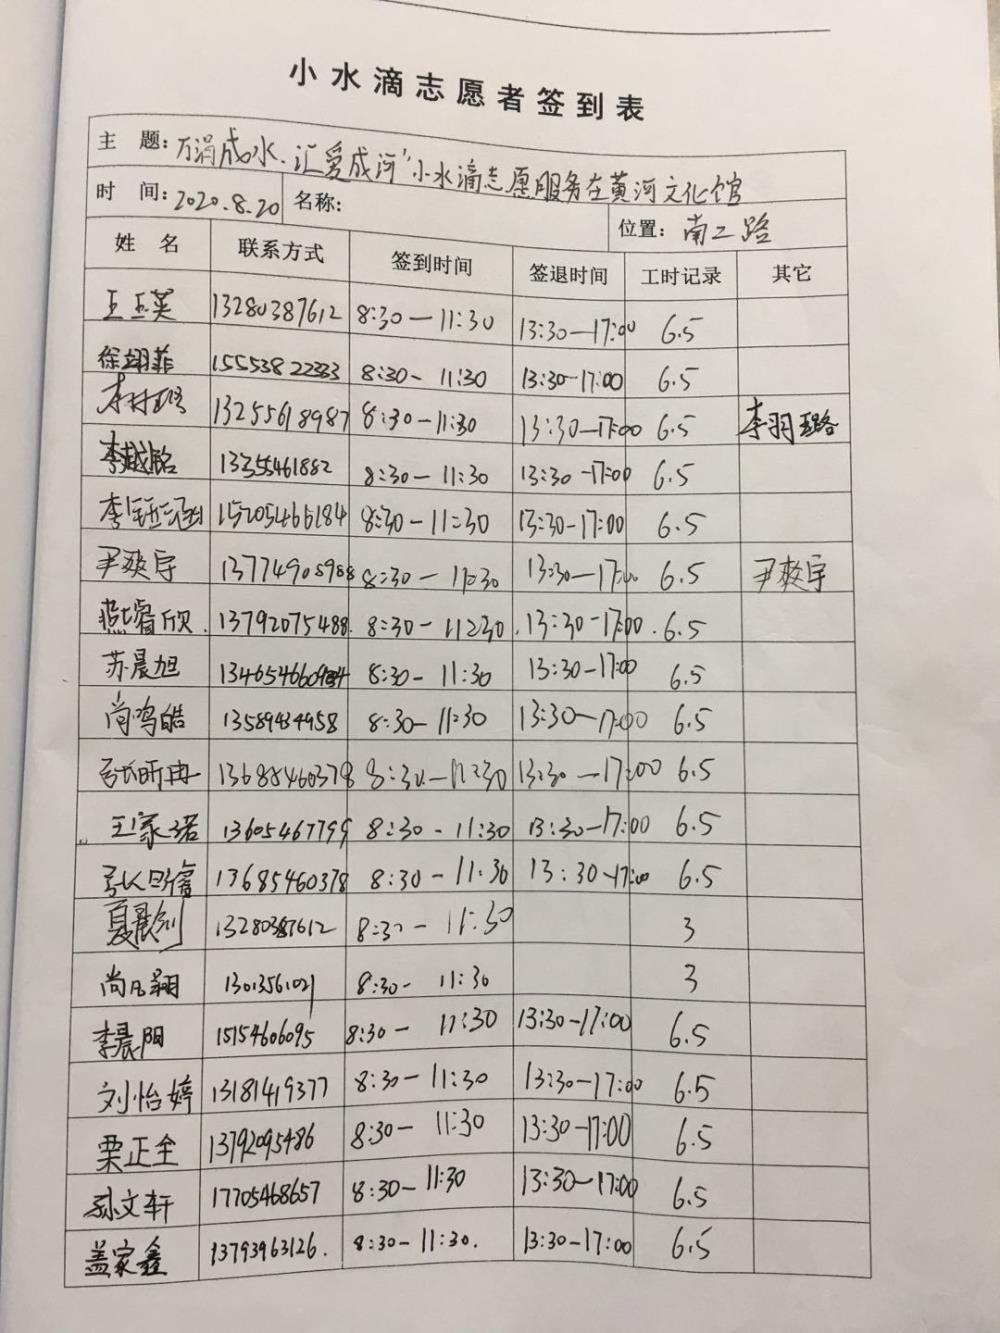 小水滴志愿者签到表
主 题: 万涓成水.汇爱成河"小水滴志愿服务在黄河文化馆
时 间: 2020.8.20 名称: 位置: 南二路
姓 名 联系方式 签到时间 签退时间 工时记录 其它
王玉英 13280387612 8:30—11:30 13:30—17:00 6.5
徐翊菲 15553822333 8:30- 11:30 13:30—17:00 6.5
李 13255618987 8:30—11:30 13:30—17:00 6.5 李羽璐
李越铭 13355461882 8:30—11:30 13:30—17:00 6.5
李钰涵 15205466184 8:30—11:30 13:30—17:00 6.5
尹爽宇 13774905988 8:30—11:30 13:30—17:00 6.5 尹爽宇
燕睿欣. 13792075488. 8:30—11:30. 13:30—17:00. 6.5
苏晨旭 8:30- 11:30 13:30—17:00 6.5
尚鸣皓 13589434958 8:30—11:30 13:30—17:00 6.5
张昕冉 8:30.—11:30 13:30—17:00 6.5
王家诺 13605467799 8:30-11:30 13:30—17:00 6.5
张 13685460378 8:30—11:30 13:30—17:00 6.5
夏 13280387612 8:30-11:30 3
尚凡翔 13013561021 8:30- 11:30 3
李晨阳 15154606095 8:30— 11:30 13:30—17:00 6.5
刘怡婷 13181419377 8:30—11:30 13:30—17:00 6.5
栗正全 13792095486 8:30— 11:30 13:30—17:00 6.5
孙文轩 17705468657 8:30—11:30 13:30—17:00 6.5
盖家鑫 13793963126. 8:30—11:30. 13:30—17:00 6.5